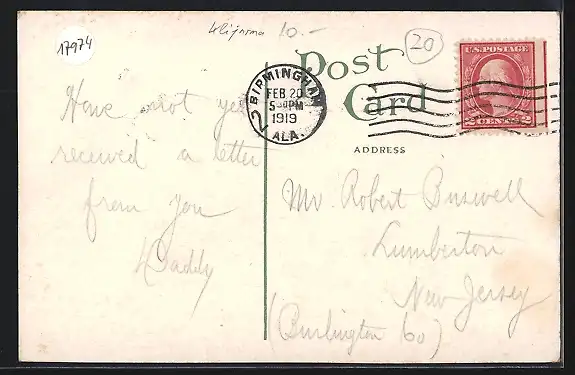 17974
10.-
20
Post
Card
U.S. POSTAGE
2 CENTS 2
BIRMINGHAM
FEB 20
5 30 PM
1919
2 ALA.
ADDRESS
Have not yet
received a letter
from you
Daddy
Mr. Robert Buswell
Lumberton
New Jersey
(Burlington Co)